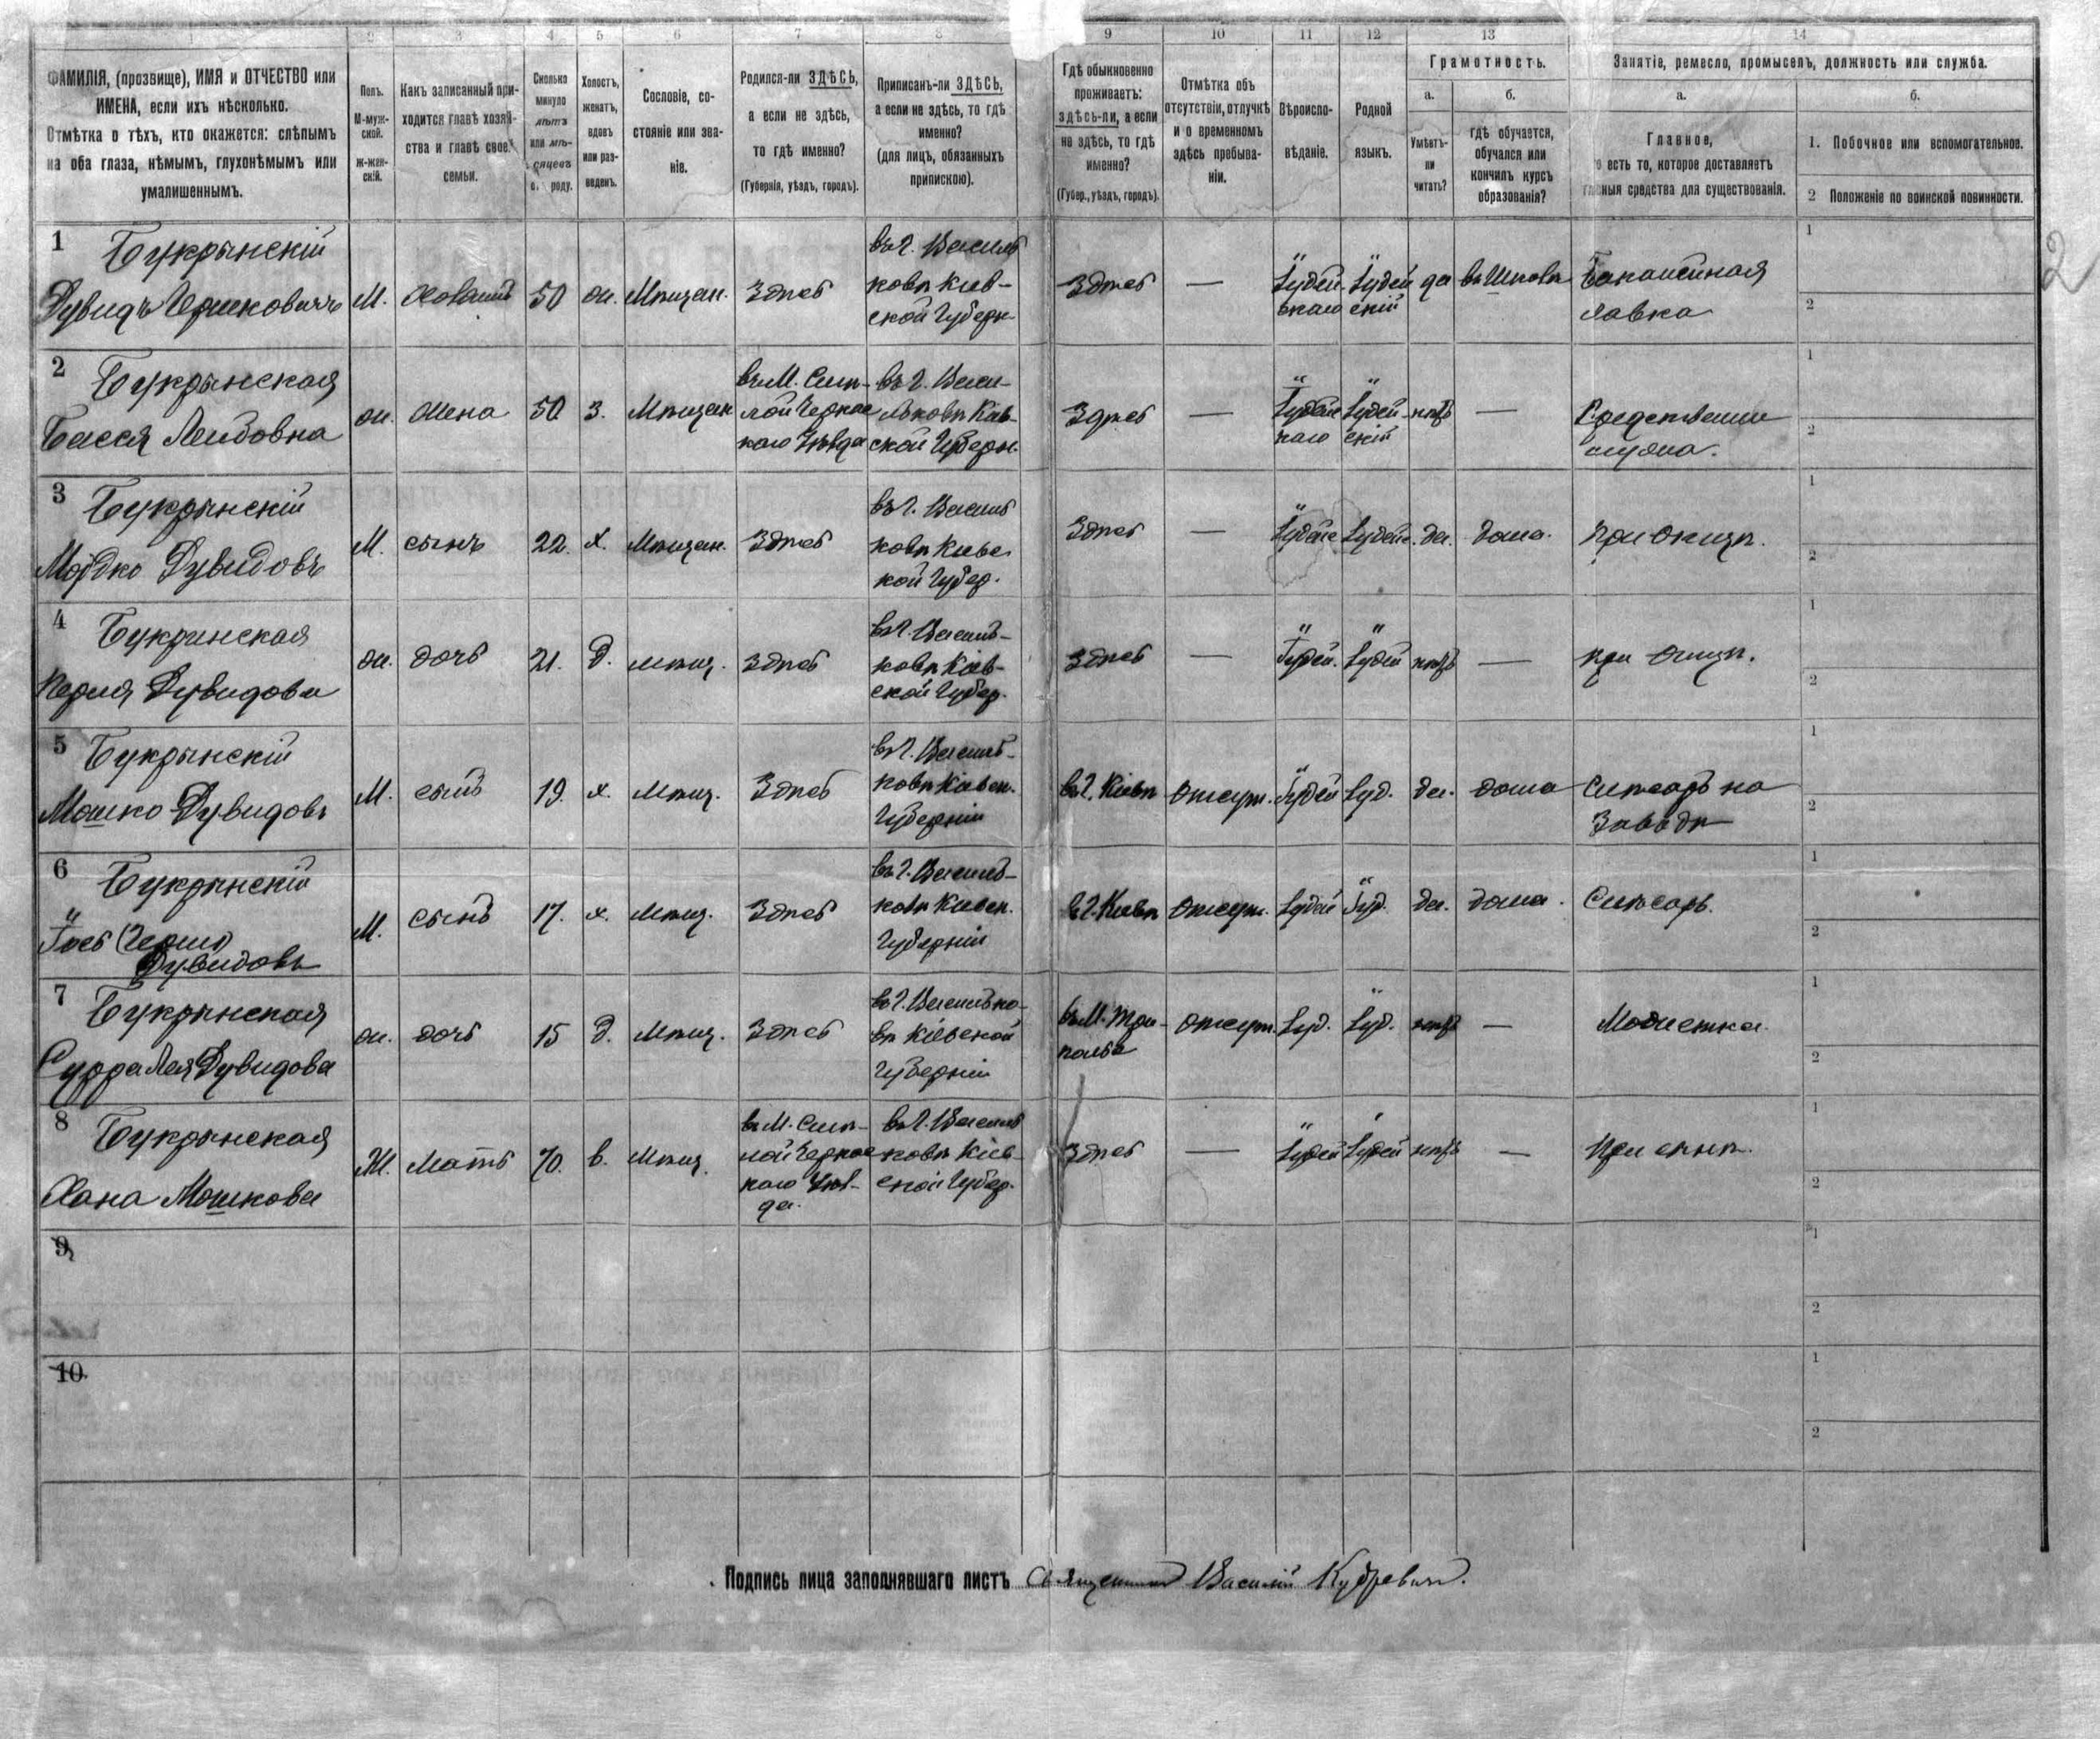 1 2 3 4 5 6 7 8 9 10 11 12 13 14
ФАМИЛІЯ, (прозвище), ИМЯ и ОТЧЕСТВО или
ИМЕНА, если ихъ нѣсколько.
Отмѣтка о тѣхъ, кто окажется: слѣпымъ
на оба глаза, нѣмымъ, глухонѣмымъ или
умалишеннымъ.
Полъ.
М-муж-
ской.
ж-жен-
скій.
Какъ записанный при-
ходится главѣ хозяй-
ства и главѣ своей
семьи.
Сколько
минуло
лѣтъ
или мѣ-
сяцевъ
о. роду.
Холостъ,
женатъ,
вдовъ
или раз-
веденъ.
Сословіе, со-
стояніе или зва-
ніе.
Родился-ли ЗДѢСЬ,
а если не здѣсь,
то гдѣ именно?
(Губернія, уѣздъ, городъ).
Приписанъ-ли ЗДѢСЬ,
а если не здѣсь, то гдѣ
именно?
(для лицъ, обязанныхъ
припискою).
Гдѣ обыкновенно
проживаетъ:
здѣсь-ли, а если
не здѣсь, то гдѣ
именно?
(Губер., уѣздъ, городъ).
Отмѣтка объ
отсутствіи, отлучкѣ
и о временномъ
здѣсь пребыва-
ніи.
Вѣроиспо-
вѣданіе.
Родной
языкъ.
Грамотность.
а.
Умѣетъ-
ли
читать?
б.
гдѣ обучается,
обучался или
кончилъ курсъ
образованія?
Занятіе, ремесло, промыселъ, должность или служба.
а.
Главное,
о есть то, которое доставляетъ
главныя средства для существованія.
б.
1. Побочное или вспомогательное.
2 Положеніе по воинской повинности.
2
1 Букрынскій
Дувидъ Гершковичъ
М.
Хозяинъ
50
ж.
Мѣщан.
Здѣсь
въ г. Василь
ковѣ Кіев-
ской Губерн
Здѣсь
—
Іудей
скаго
Іудей
скій
да
въ Школѣ
Бакалейная
лавка
1
2
2 Букрынская
Бася Лейбовна
ж.
Жена
50
З.
Мѣщан
въ г. Васи-
льковѣ Кіев-
ской Губерн.
Здѣсь
—
Іудейс
каго
Іудей
скій
нѣтъ
—
1
2
3 Букрынскій
Мордко Дувидовъ
М.
сынъ
22.
х.
Мѣщан.
Здѣсь
въ г. Василь
ковѣ Кіевс
кой Губер.
Здѣсь
—
Іудейс
Іудейс.
да.
дома.
При Отцѣ.
1
2
4 Букринская
Перля Дувидова
ж.
дочь
21.
д.
мѣщ.
Здѣсь
въ г. Василь-
ковѣ Кіев-
ской Губер.
Здѣсь
—
Іудей.
Іудей
нѣтъ
—
при Отцѣ.
1
2
5 Букрынскій
Мошко Дувидовъ
М.
сынъ
19.
х.
Мѣщ.
Здѣсь
въ г. Василь-
ковѣ Кіевск.
Губерніи
въ г. Кіевѣ
Отсут.
Іудей
Іуд.
да.
дома
Слѣсарь на
Заводѣ
1
2
6 Букрынскій
Іось (Герш)
Дувидовъ
М.
Сынъ
17.
х.
Мѣщ.
Здѣсь
въ г. Василь-
ковѣ Кіевск.
Губерніи
въ г. Кіевѣ
Отсут.
Іудей
Іуд.
да.
дома.
Слѣсарь.
1
2
7 Букрынская
Сурра Лея Дувидова
ж.
дочь
15
д.
Мѣщ.
Здѣсь
въ г. Василько-
вѣ Кіевской
Губерніи
въ М. Три-
полье
Отсут.
Іуд.
Іуд.
нѣтъ
—
Модистка.
1
2
8 Букрынская
Хана Мошкова
Ж.
Мать
70.
в.
Мѣщ.
въ г. Василь
ковѣ Кіев-
ской Губер.
Здѣсь
—
Іудей
Іудей
нѣтъ
—
При сынѣ.
1
2
9
1
2
10
1
2
Подпись лица заполнявшаго листъ Священникъ Василій Кудревич.